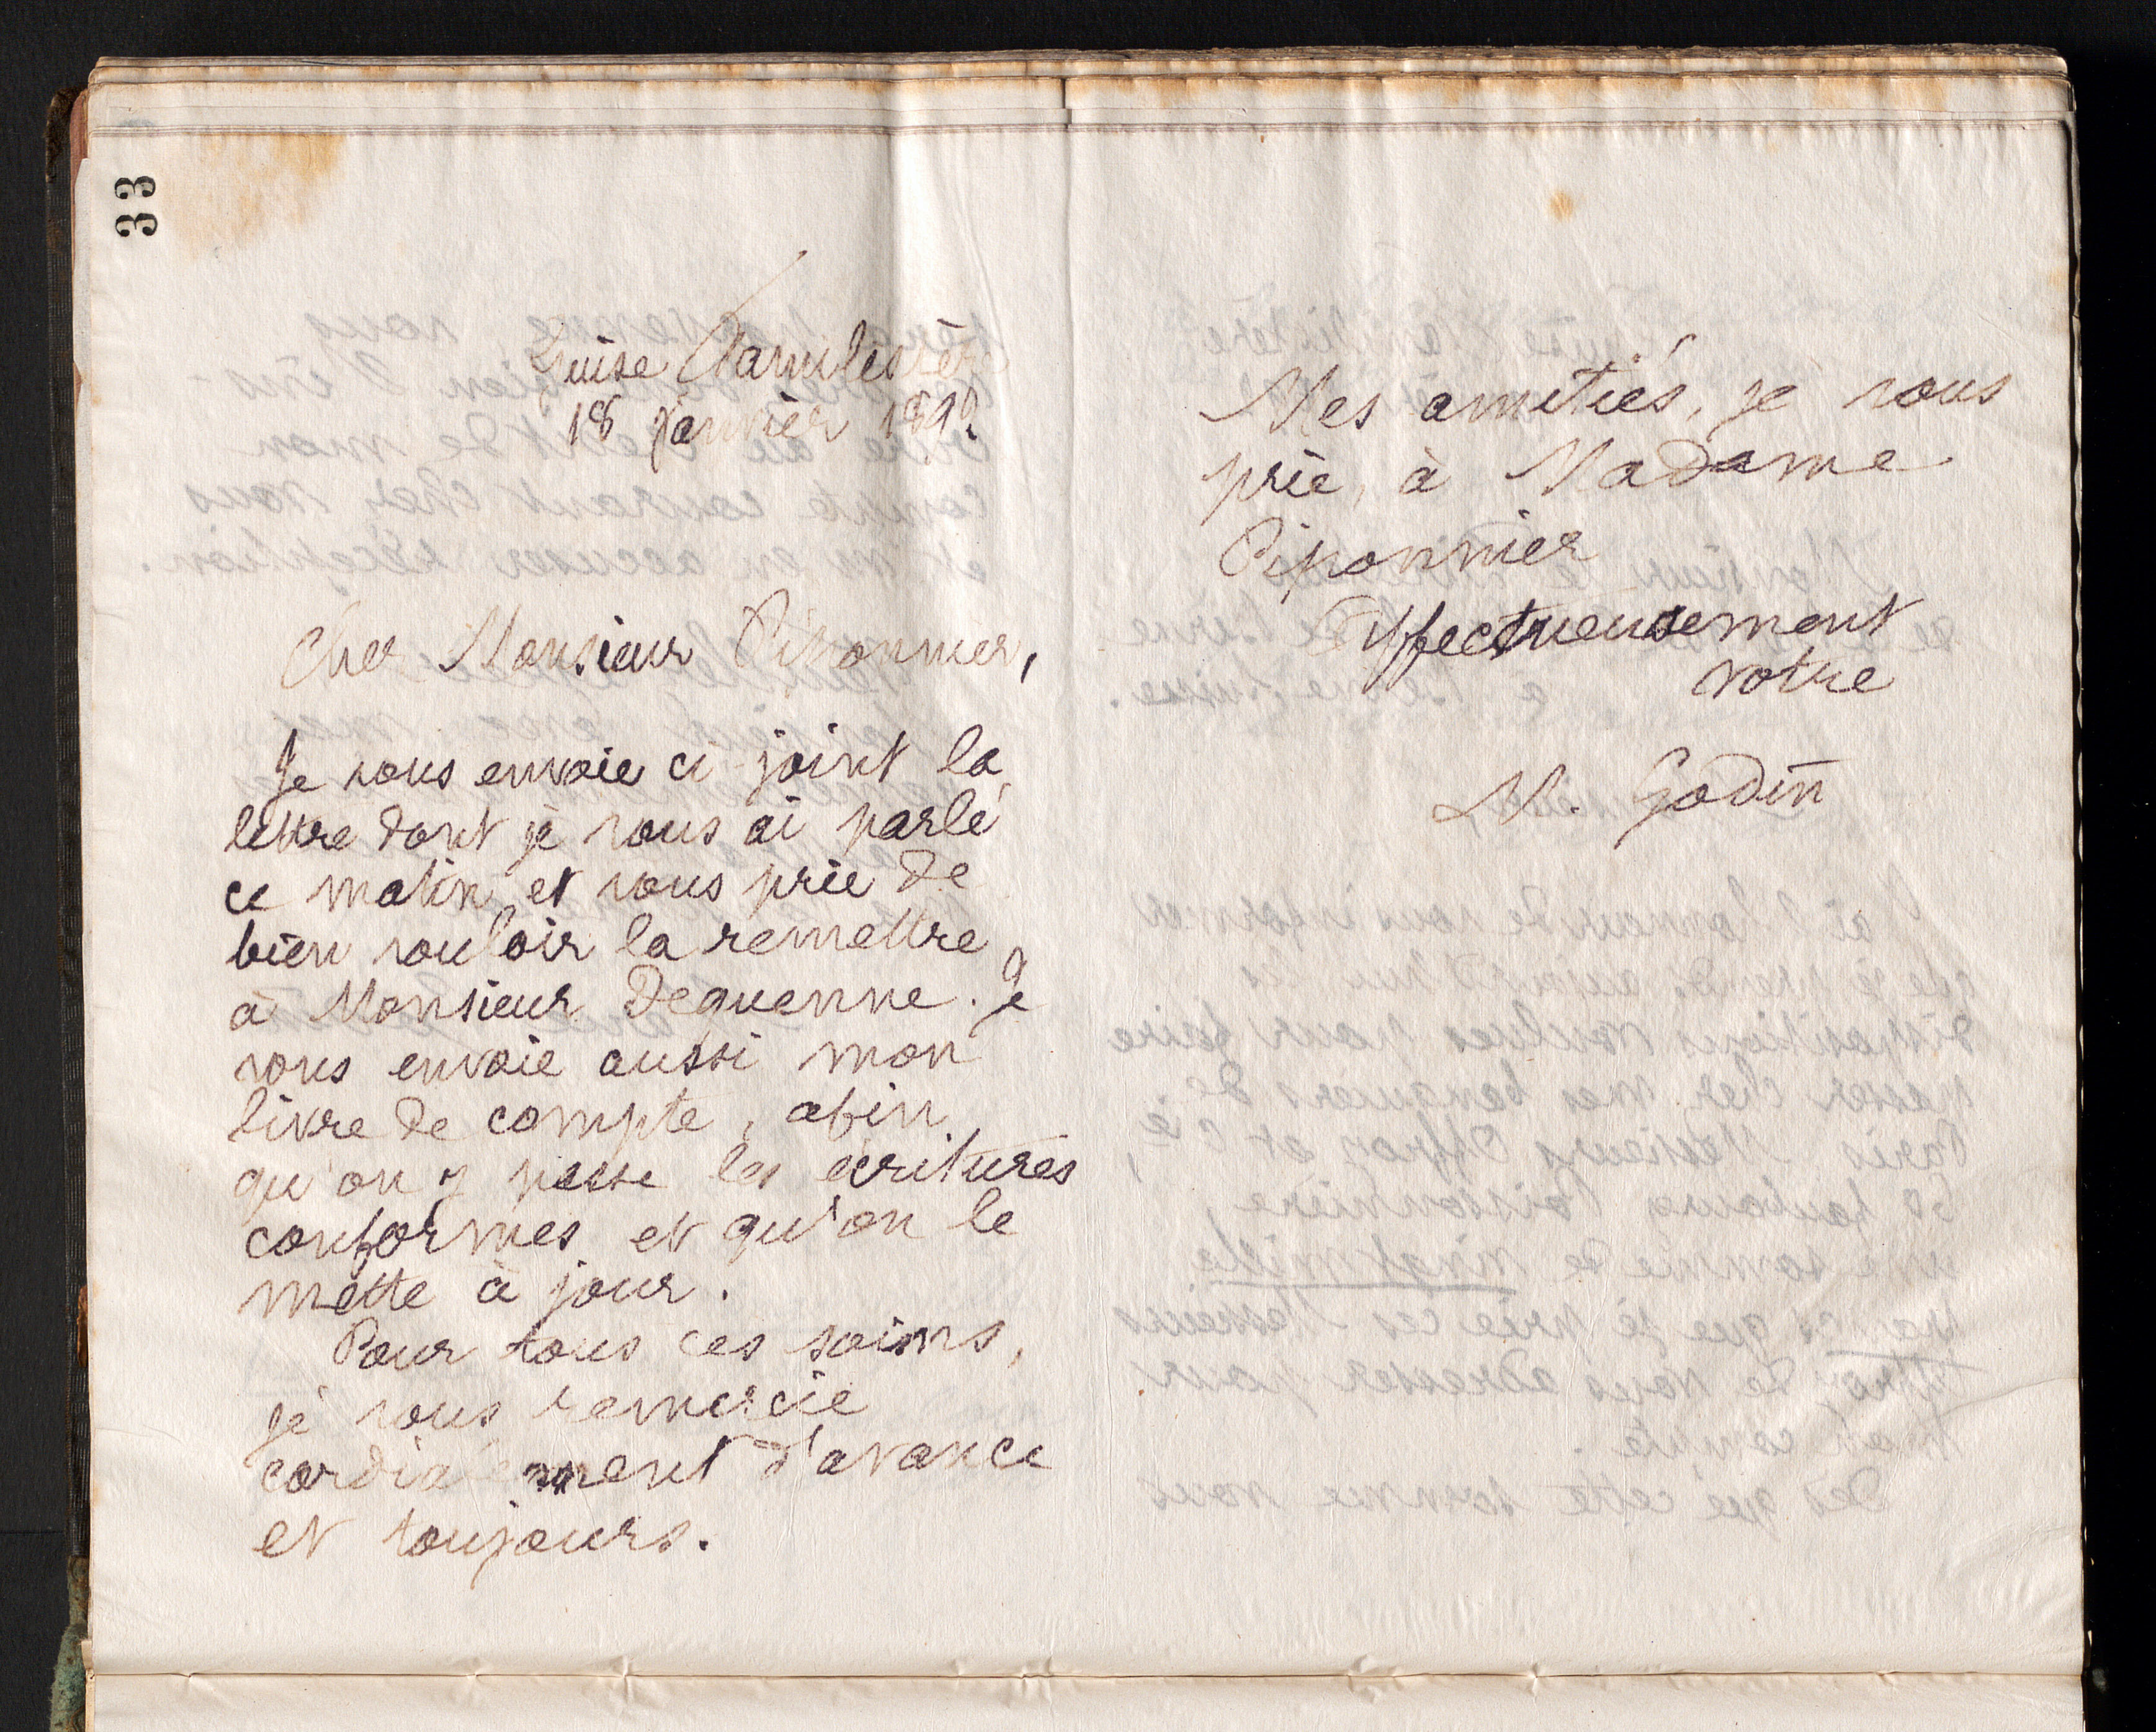 33
Guise Familistère
18 janvier 1892
Cher Monsieur Piponnier,
Je vous envoie ci-joint la
lettre dont je vous ai parlé
ce matin et vous prie de
bien vouloir la remettre
à Monsieur Dequenne. Je
vous envoie aussi mon
livre de compte, afin
qu'on y passe les écritures
conformes et qu'on le
mette à jour.
Pour tous ces soins,
je vous remercie
cordialement d'avance
et toujours.
Mes amitiés, je vous
prie, à Madame
Piponnier
Affectueusement
votre
M. Godin